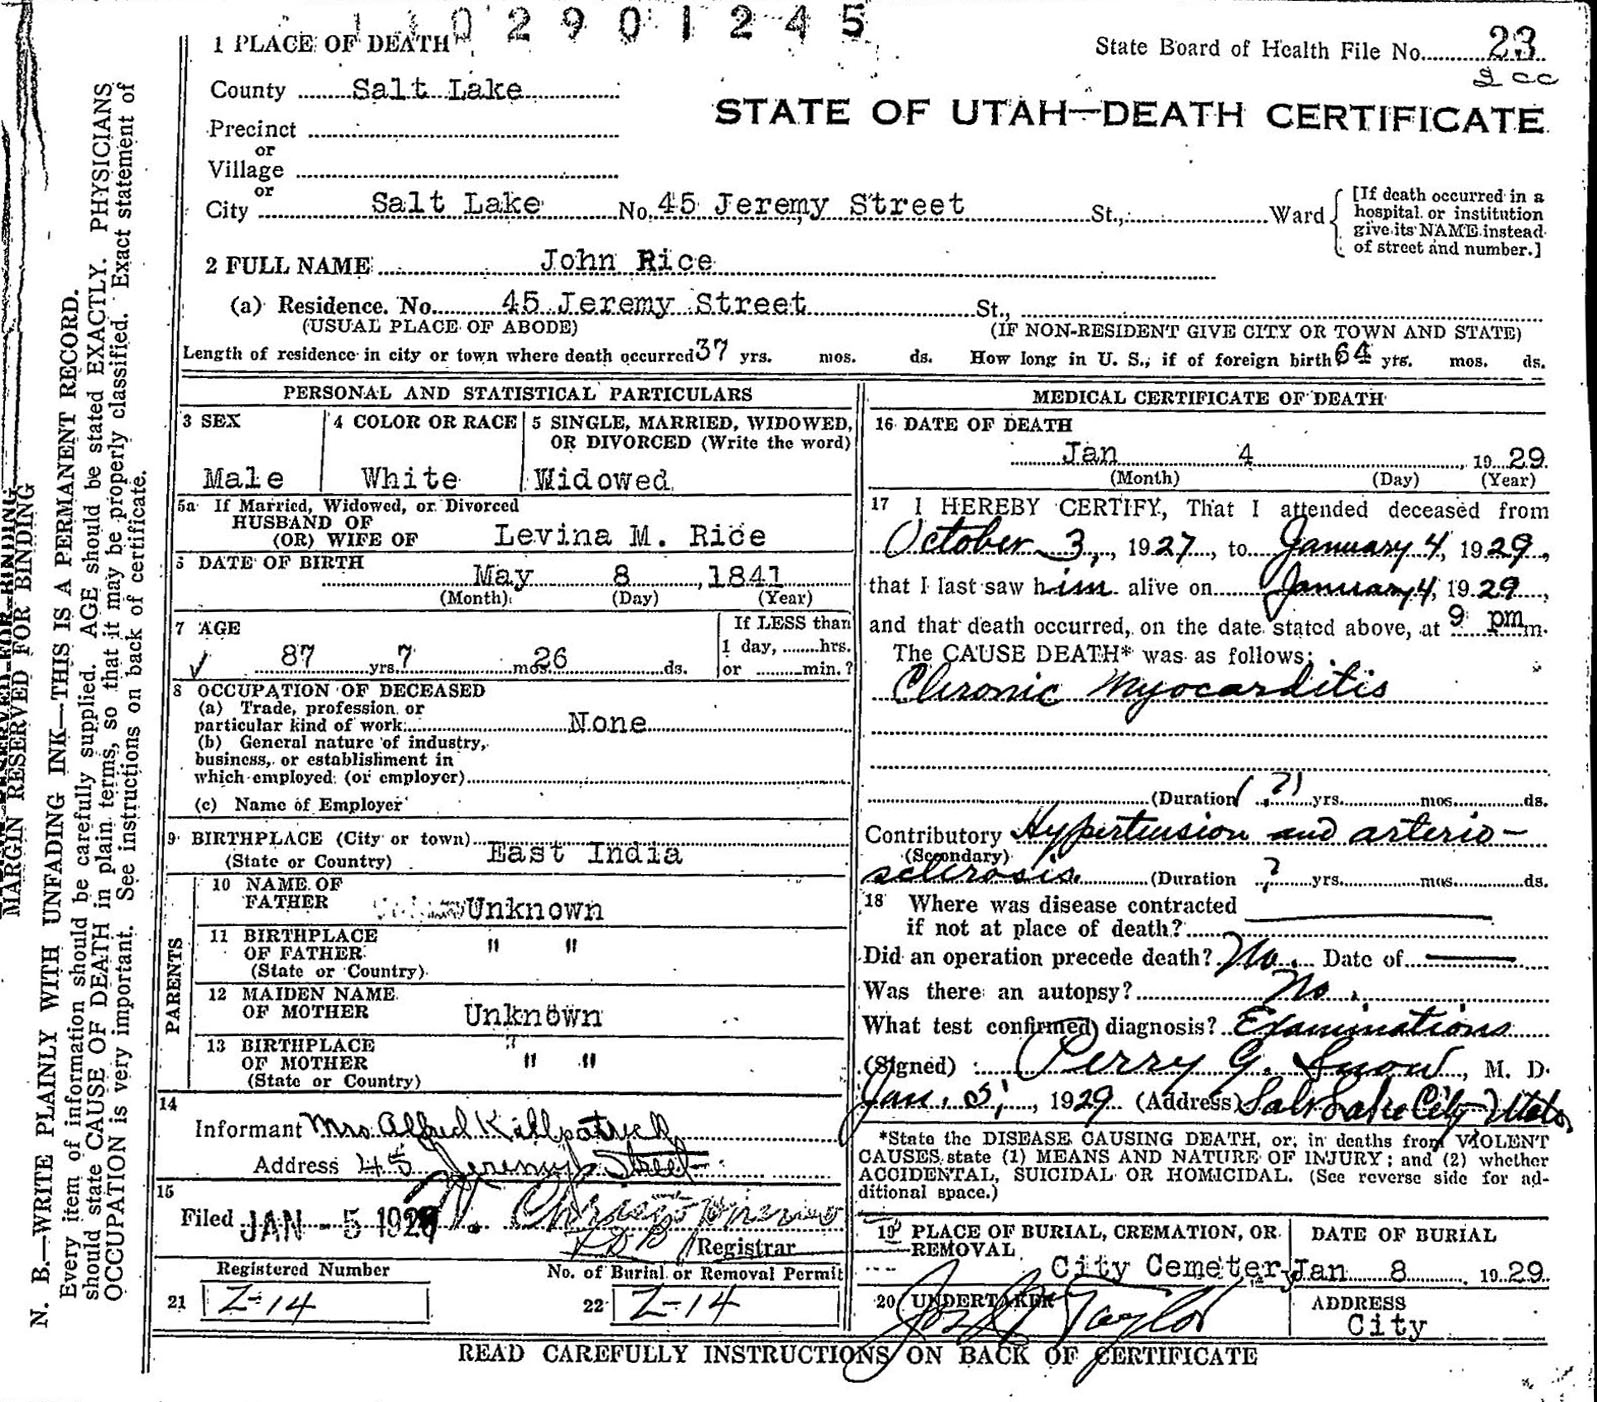 1 1 0 2 9 0 1 2 4 5
1 PLACE OF DEATH
State Board of Health File No. 23
County Salt Lake
STATE OF UTAH—DEATH CERTIFICATE
Precinct
or
Village
or
City Salt Lake No. 45 Jeremy Street St., Ward
[If death occurred in a
hospital or institution
give its NAME instead
of street and number.]
2 FULL NAME John Rice
(a) Residence. No. 45 Jeremy Street St.,
(USUAL PLACE OF ABODE) (IF NON-RESIDENT GIVE CITY OR TOWN AND STATE)
Length of residence in city or town where death occurred 37 yrs. mos. ds. How long in U. S., if of foreign birth 64 yrs. mos. ds.
PERSONAL AND STATISTICAL PARTICULARS
3 SEX
Male
4 COLOR OR RACE
White
5 SINGLE, MARRIED, WIDOWED,
OR DIVORCED (Write the word)
Widowed
5a If Married, Widowed, or Divorced
HUSBAND OF
(OR) WIFE OF Levina M. Rice
6 DATE OF BIRTH
May 8, 1841
(Month) (Day) (Year)
7 AGE
87 yrs. 7 mos. 26 ds.
If LESS than
1 day, ......hrs.
or ......min.?
8 OCCUPATION OF DECEASED
(a) Trade, profession or
particular kind of work None
(b) General nature of industry,
business, or establishment in
which employed (or employer)
(c) Name of Employer
9 BIRTHPLACE (City or town)
(State or Country) East India
PARENTS
10 NAME OF
FATHER Unknown
11 BIRTHPLACE
OF FATHER " "
(State or Country)
12 MAIDEN NAME
OF MOTHER Unknown
13 BIRTHPLACE
OF MOTHER " "
(State or Country)
14
Informant Mrs Alfred Killpatrick
Address 45 Jeremy Street
15
Filed JAN - 5 1929
Registrar
Registered Number
21 Z-14
No. of Burial or Removal Permit
22 Z-14
MEDICAL CERTIFICATE OF DEATH
16 DATE OF DEATH
Jan 4, 1929
(Month) (Day) (Year)
17 I HEREBY CERTIFY, That I attended deceased from
October 3, 1927, to January 4, 1929,
that I last saw him alive on January 4, 1929,
and that death occurred, on the date stated above, at 9 pm m.
The CAUSE DEATH* was as follows:
Chronic Myocarditis
(Duration (?) yrs. mos. ds.
Contributory Hypertension and arterio-
(Secondary)
sclerosis (Duration ? yrs. mos. ds.
18 Where was disease contracted
if not at place of death?
Did an operation precede death? No. Date of
Was there an autopsy? No.
What test confirmed diagnosis? Examinations
(Signed) Perry G. Snow, M. D.
Jan. 5, 1929 (Address) Salt Lake City Utah
*State the DISEASE CAUSING DEATH, or, in deaths from VIOLENT
CAUSES state (1) MEANS AND NATURE OF INJURY; and (2) whether
ACCIDENTAL, SUICIDAL OR HOMICIDAL. (See reverse side for ad-
ditional space.)
19 PLACE OF BURIAL, CREMATION, OR
REMOVAL
City Cemetery
DATE OF BURIAL
Jan 8, 1929
20 UNDERTAKER
Taylor
ADDRESS
City
READ CAREFULLY INSTRUCTIONS ON BACK OF CERTIFICATE
MARGIN RESERVED FOR BINDING
N. B.—WRITE PLAINLY WITH UNFADING INK—THIS IS A PERMANENT RECORD.
Every item of information should be carefully supplied. AGE should be stated EXACTLY. PHYSICIANS
should state CAUSE OF DEATH in plain terms, so that it may be properly classified. Exact statement of
OCCUPATION is very important. See instructions on back of certificate.